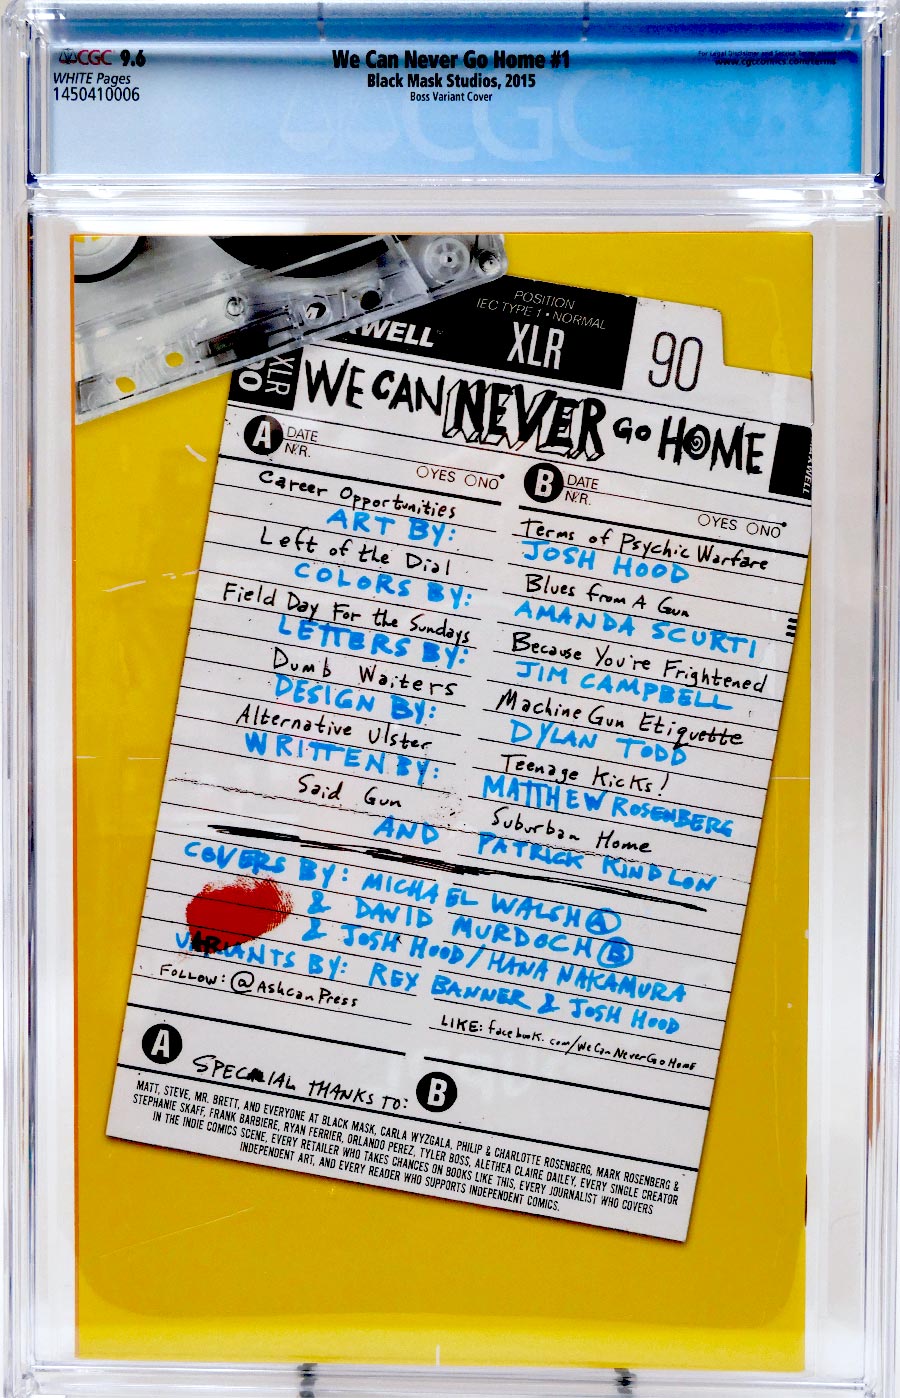 CGC 9.6
WHITE Pages
1450410006
We Can Never Go Home #1
Black Mask Studios, 2015
Boss Variant Cover
For Legal Disclaimer and Service Terms
www.cgccomics.com/terms
CGC
POSITION
IEC TYPE 1 • NORMAL
XWELL
XLR
90
XLR
90
WE CAN NEVER GO HOME
XWELL
A DATE
N.R.
OYES ONO
B DATE
N.R.
OYES ONO
Career Opportunities
Terms of Psychic Warfare
ART BY:
JOSH HOOD
Left of the Dial
Blues from A Gun
COLORS BY:
AMANDA SCURTI
Field Day For the Sundays
Because You're Frightened
LETTERS BY:
JIM CAMPBELL
Dumb Waiters
Machine Gun Etiquette
DESIGN BY:
DYLAN TODD
Alternative Ulster
Teenage Kicks!
WRITTEN BY:
MATTHEW ROSENBERG
Said Gun
Suburban Home
AND PATRICK KINDLON
COVERS BY: MICHAEL WALSH A
& DAVID MURDOCH B
& JOSH HOOD/HANA NAKAMURA
VARIANTS BY: REX BANNER & JOSH HOOD
FOLLOW: @AshcanPress
LIKE: facebook.com/WeCanNeverGoHome
A
SPECIAL THANKS TO:
B
MATT, STEVE, MR. BRETT, AND EVERYONE AT BLACK MASK, CARLA WYZGALA, PHILIP & CHARLOTTE ROSENBERG, MARK ROSENBERG &
STEPHANIE SKAFF, FRANK BARBIERE, RYAN FERRIER, ORLANDO PEREZ, TYLER BOSS, ALETHEA CLAIRE DAILEY, EVERY SINGLE CREATOR
IN THE INDIE COMICS SCENE, EVERY RETAILER WHO TAKES CHANCES ON BOOKS LIKE THIS, EVERY JOURNALIST WHO COVERS
INDEPENDENT ART, AND EVERY READER WHO SUPPORTS INDEPENDENT COMICS.